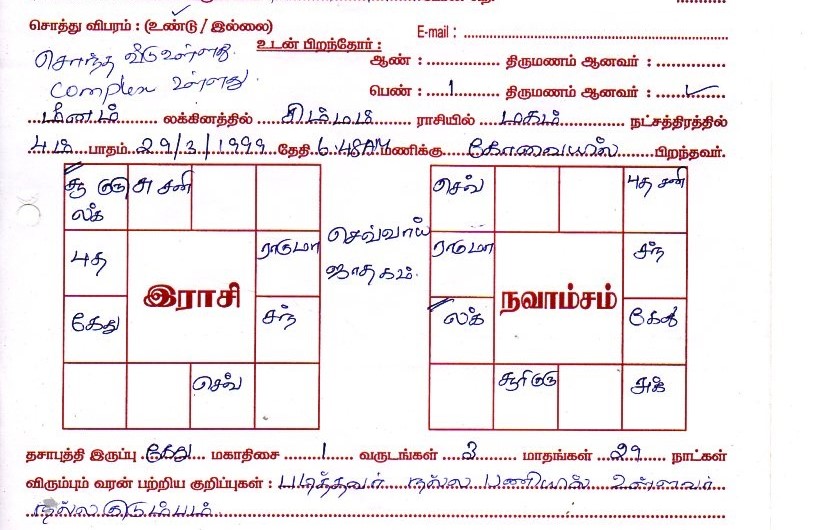 சொத்து விபரம் : (உண்டு / இல்லை) E-mail :
சொந்த வீடு உள்ளது. உடன் பிறந்தோர் : ஆண் : திருமணம் ஆனவர் :
Complex உள்ளது. பெண் : 1 திருமணம் ஆனவர் : ✓
மீனம் லக்கினத்தில் சிம்மம் ராசியில் மகம் நட்சத்திரத்தில்
4ம் பாதம் 29/3/1999 தேதி 6.48AM மணிக்கு கோவையில் பிறந்தவர்.
சூ குரு சு சனி செவ் புத சனி
லக்
புத ராகு மா செவ்வாய் ராகு மா சந்
இராசி ஜாதகம். நவாம்சம்
கேது சந் லக் கேது
செவ் சூரி குரு சுக்
தசாபுத்தி இருப்பு கேது மகாதிசை 1 வருடங்கள் 3 மாதங்கள் 29 நாட்கள்
விரும்பும் வரன் பற்றிய குறிப்புகள் : படித்தவர் நல்ல பணியில் உள்ளவர்
நல்ல குடும்பம்